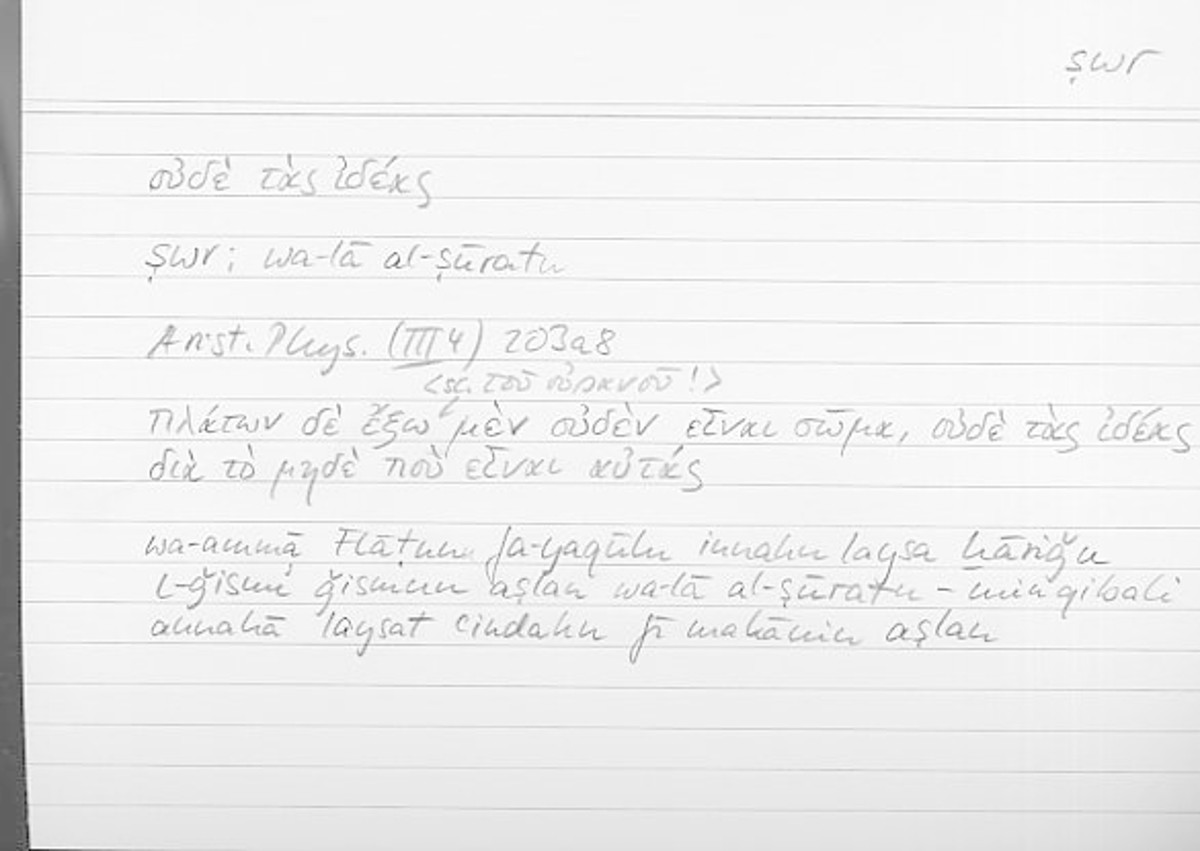 ṣwr
οὐδὲ τὰς ἰδέας
ṣwr; wa-lā al-ṣūratu
Arist. Phys. (III 4) 203a8
<sc. τοῦ οὐρανοῦ!>
Πλάτων δὲ ἔξω μὲν οὐδὲν εἶναι σῶμα, οὐδὲ τὰς ἰδέας
διὰ τὸ μηδὲ ποὺ εἶναι αὐτάς
wa-ammā Flāṭun fa-yaqūlu innahu laysa ḫāriǧu
l-ǧismi ǧismun aṣlan wa-lā al-ṣūratu – min qibali
annahā laysat ʿindahu fī makānin aṣlan